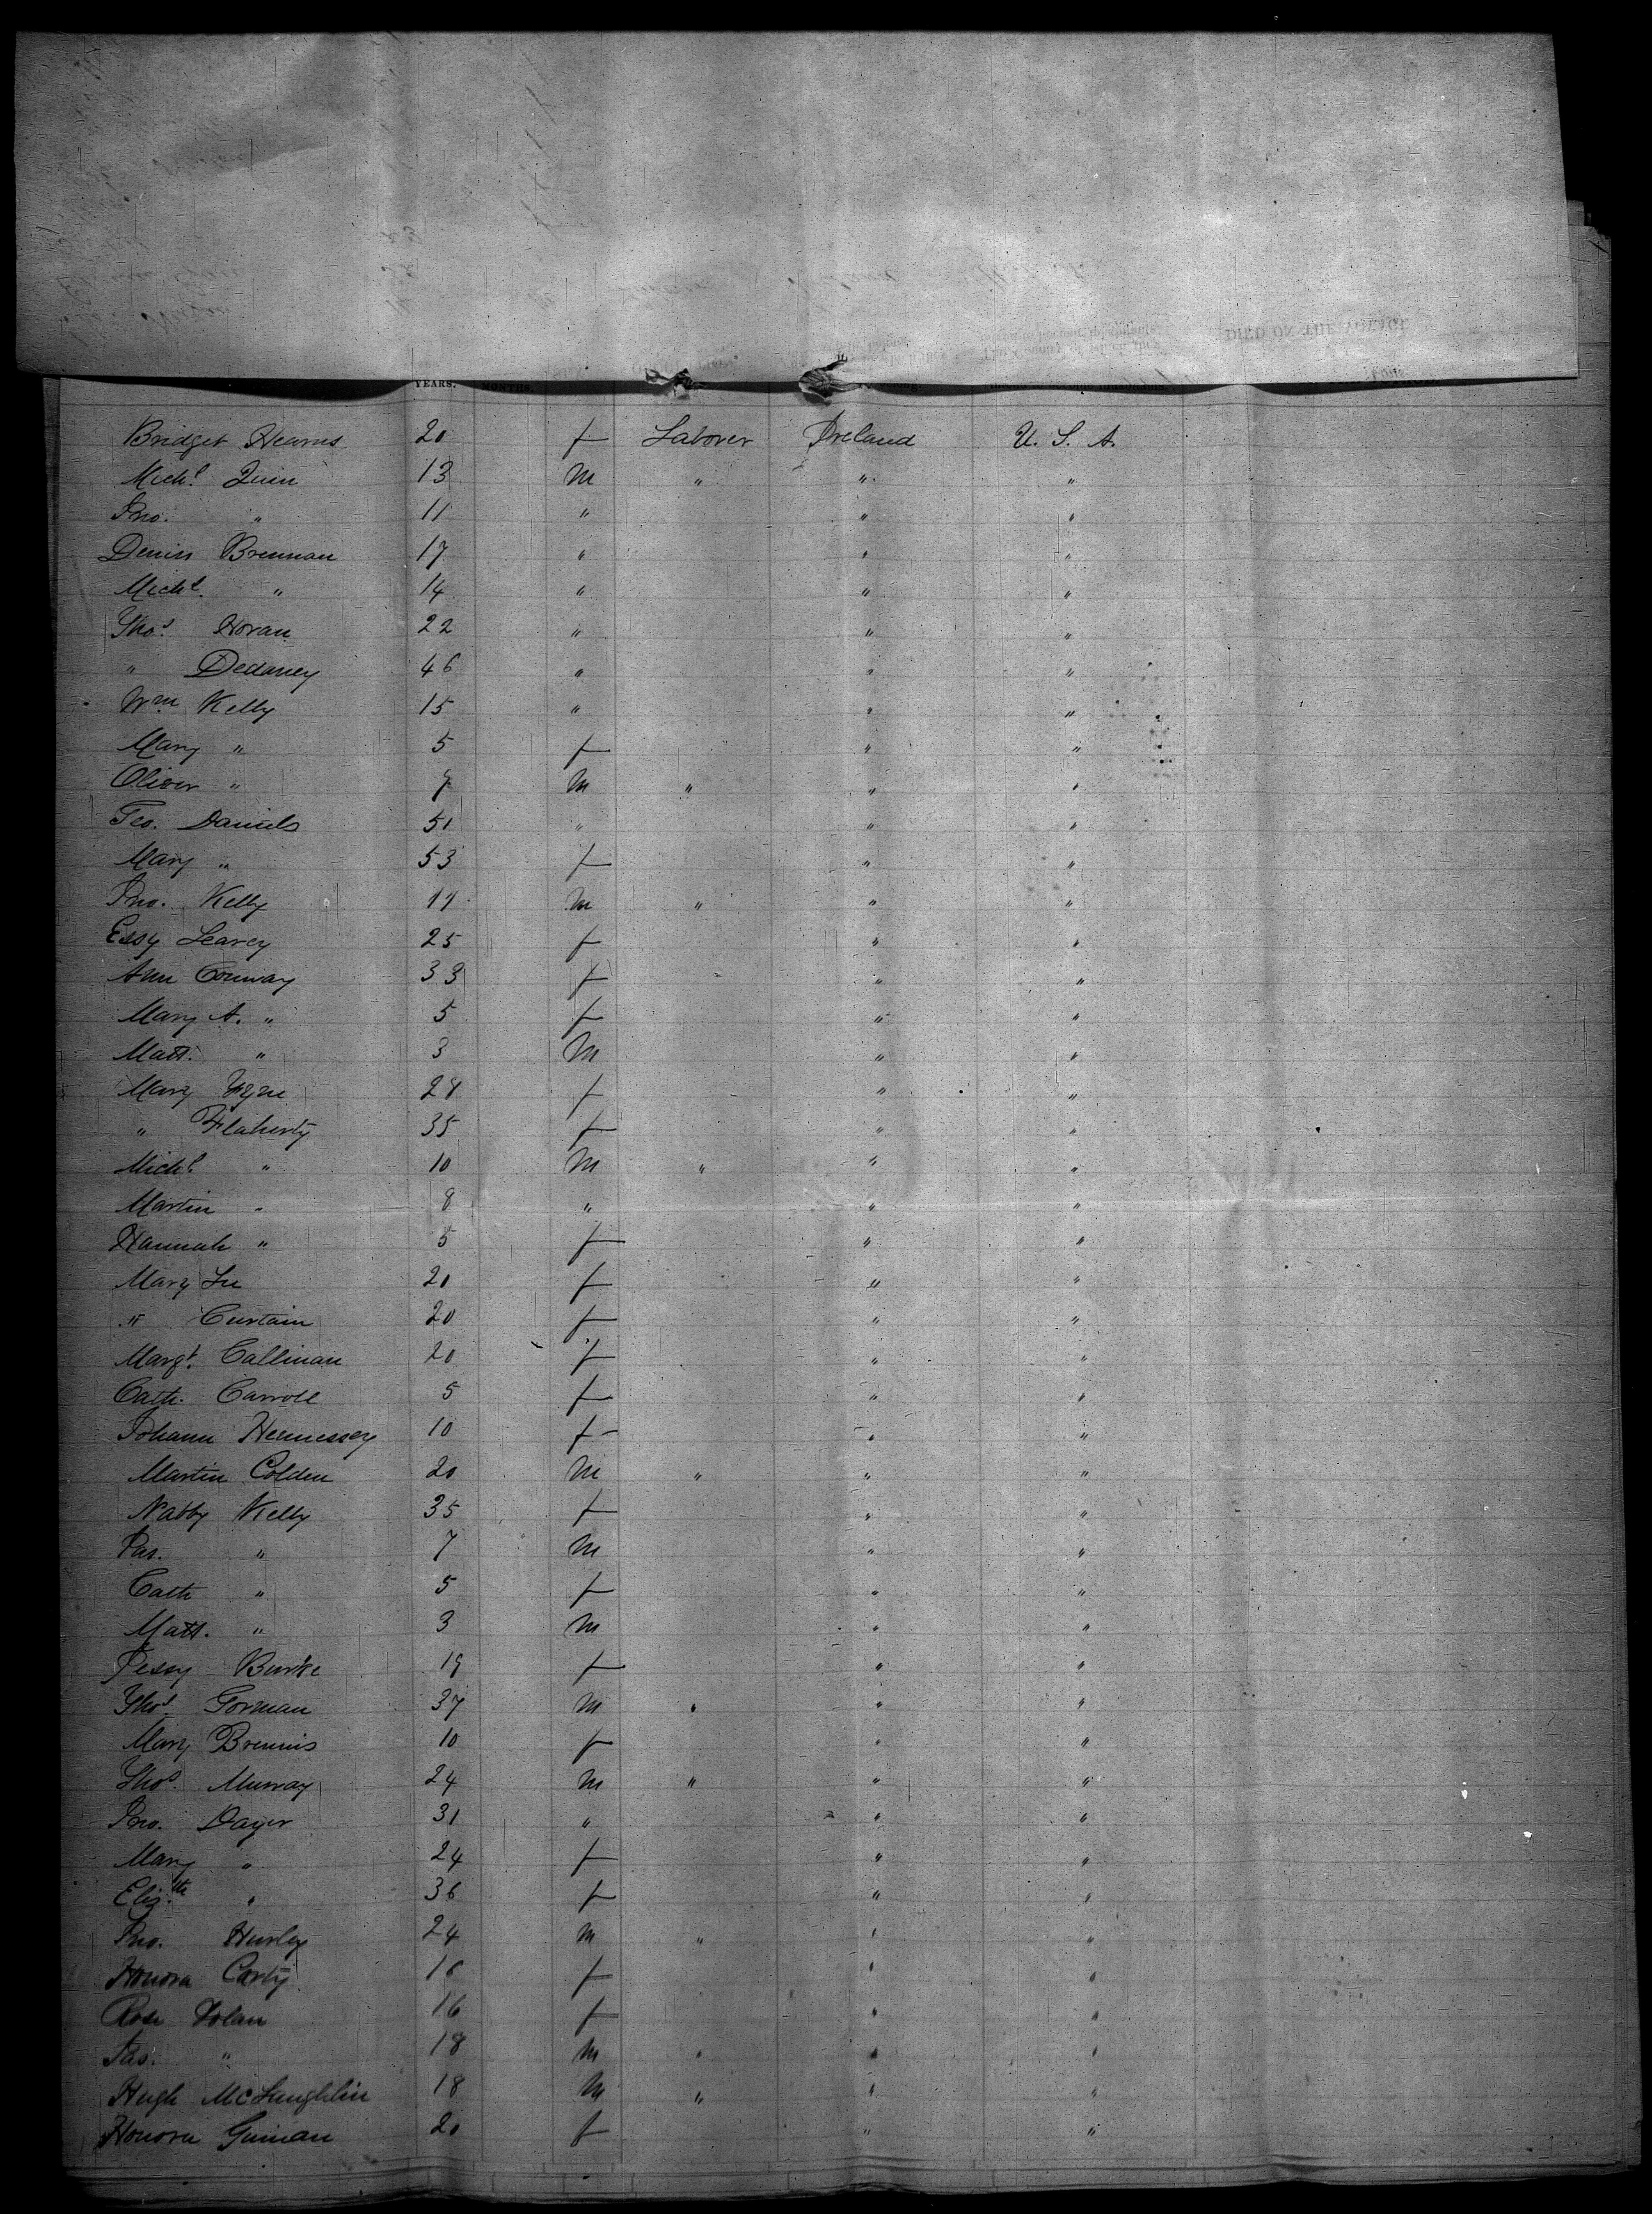 YEARS. MONTHS.
DIED ON THE VOYAGE
Bridget Hearns 20 f Laborer Ireland U. S. A.
Michl. Quin 13 M " " "
Jno. " 11 " " "
Denis Brennan 17 " " "
Michl. " 14 " " "
Thos. Horan 22 " " "
" Dedaney 46 " " "
Wm Kelly 15 " " "
Mary " 5 f " "
Oliver " 7 M " " "
Geo. Daniels 51 " " "
Mary " 53 f " "
Jno. Kelly 19 M " " "
Essy Learey 25 f " "
Ann Conway 33 f " "
Mary A. " 5 f " "
Matt. " 3 M " "
Mary 28 f " "
" Flaherty 35 f " "
Michl. " 10 M " " "
Martin " 8 " " "
Hannah " 5 f " "
Mary Lee 20 f " "
" Curtain 20 f " "
Margt. Callinan 20 f " "
Cath. Carroll 5 f " "
Johann Hennessey 10 f " "
Martin Colden 20 M " " "
Nabby Kelly 35 f " "
Jas. " 7 M " "
Cath " 5 f " "
Matt. " 3 M " "
Jessy Burke 19 f " "
Thos. Gorman 37 M " " "
Mary Brennis 10 f " "
Thos. Murray 24 M " " "
Jno. Dayer 31 " " "
Mary " 24 f " "
Elizth " 36 f " "
Jno. Hurley 24 M " " "
Honora Carty 16 f " "
Rose Nolan 16 f " "
Jas. " 18 M " " "
Hugh McLaughlin 18 M " " "
Honora Guinan 20 f " "